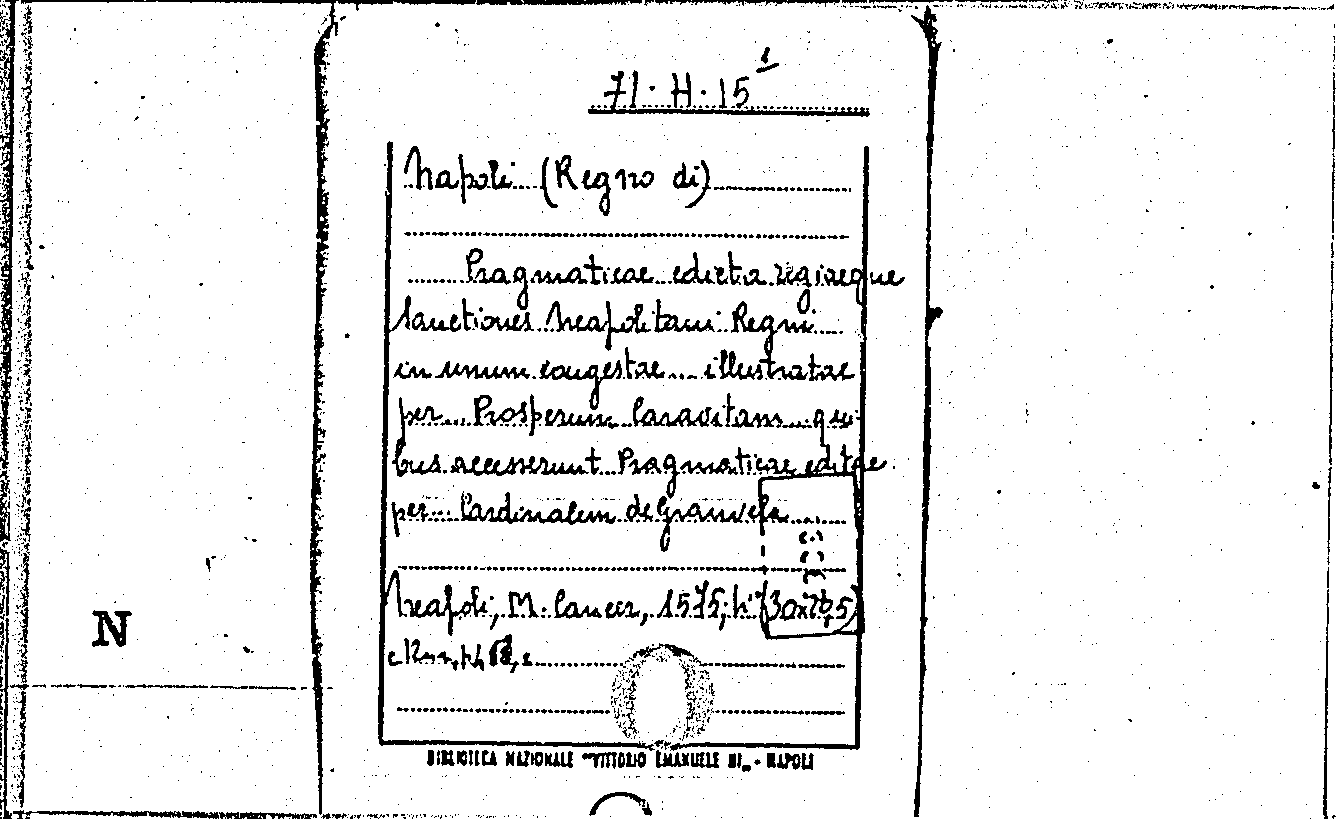 71·H·15¹
Napoli (Regno di)
Pragmaticae edicta regiaeque
Sanctiones Neapolitani Regni
in unum congestae... illustratae
per... Prosperum Caravitam... qui-
bus accesserunt Pragmaticae editae
per... Cardinalem de Granvela...
N
Neapoli, M. Cancer, 1575;
BIBLIOTECA NAZIONALE "VITTORIO EMANUELE III„ - NAPOLI